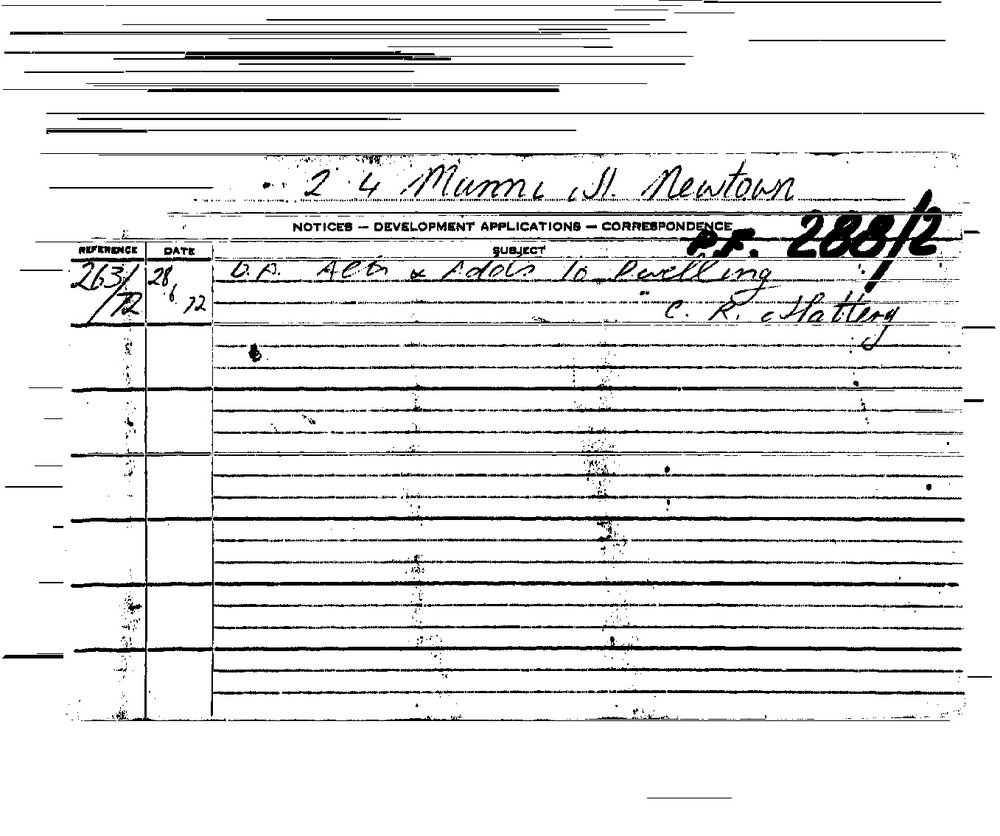 2 4 Munni St. Newtown
NOTICES – DEVELOPMENT APPLICATIONS – CORRESPONDENCE
P.F. 288/2
REFERENCE DATE SUBJECT
263/72 28/6/72 D.A. Alts & Adds to Dwelling
C. R. Slattery